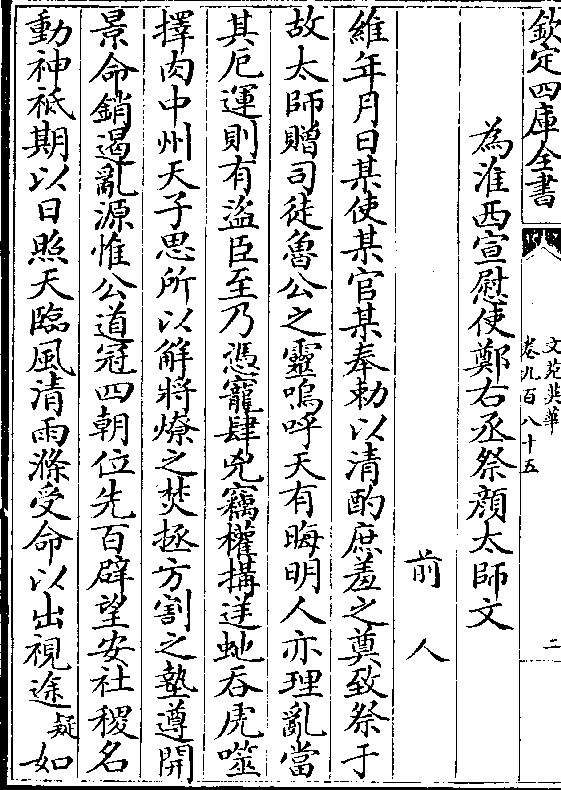 欽定四庫全書
文苑英華
卷九百八十五
二
為淮西宣慰使鄭右丞祭顏太師文
前人
維年月日某使某官某奉勅以清酌庶羞之奠致祭于
故太師贈司徒魯公之靈嗚呼天有晦明人亦理亂當
其厄運則有盜臣至乃憑寵肆兇竊權搆逆虵吞虎噬
擇肉中州天子思所以解將燎之焚拯方割之墊遵開
景命銷遏亂源惟公道冠四朝位先百辟望安社稷名
動神祗期以日照天臨風清雨滌受命以出視途疑如